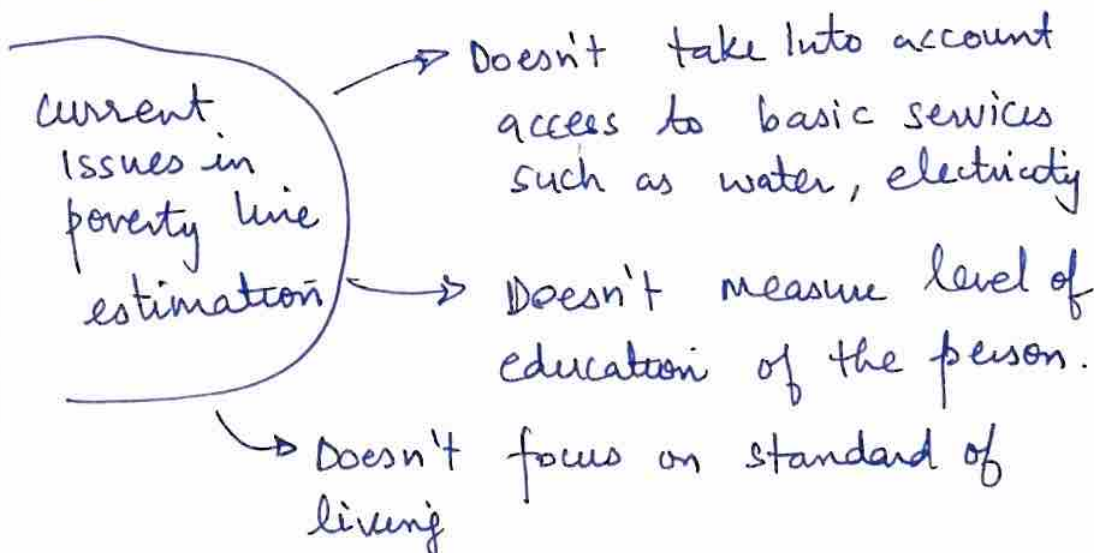 current
issues in
poverty line
estimation
Doesn't take into account
access to basic services
such as water, electricity
Doesn't measure level of
education of the person.
Doesn't focus on standard of
living